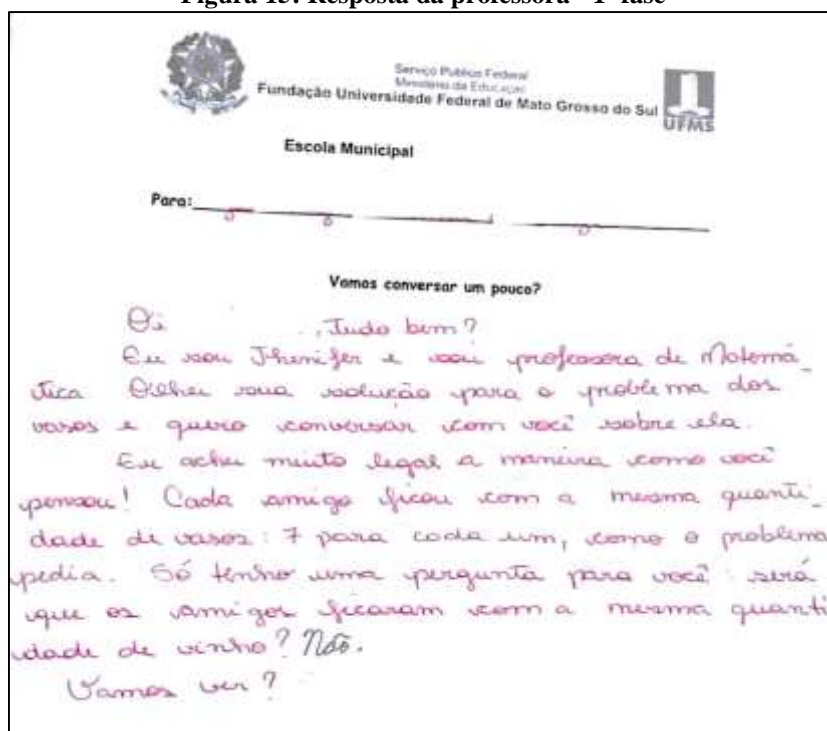 Figura 15: Resposta da professora - 1ª fase
Serviço Público Federal
Ministério da Educação
Fundação Universidade Federal de Mato Grosso do Sul
UFMS
Escola Municipal
Para:
Vamos conversar um pouco?
Oi , Tudo bem?
Eu sou Jhenifer e sou professora de Matemá_
tica Olhei sua solução para o problema dos
vasos e quero conversar com você sobre ela.
Eu achei muito legal a maneira como você
pensou! Cada amigo ficou com a mesma quanti_
dade de vasos: 7 para cada um, como o problema
pedia. Só tenho uma pergunta para você: será
que os amigos ficaram com a mesma quanti
dade de vinho? Não.
Vamos ver?